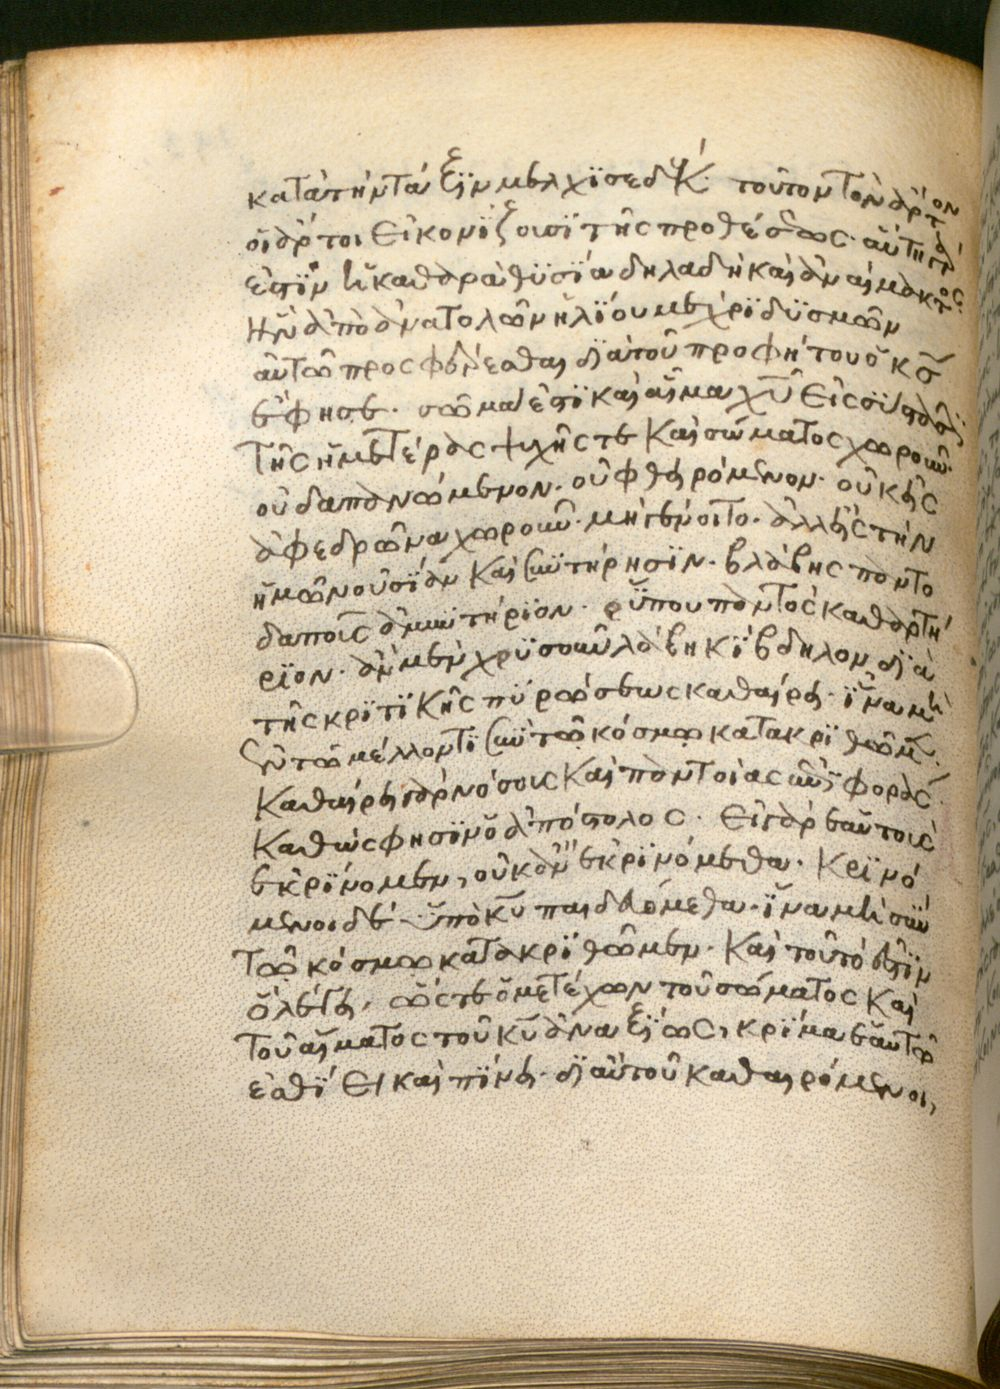 κατὰ τὴν τάξϊν μελχϊσεδέκ. τοῦτον τὸν ἄρτον
οἱ ἄρτοι εἰκονΐζουσϊ τῆς προθέσεως. αὕτη γάρ
ἐστϊν ἡ καθαρὰ θϋσΐα δηλαδὴ καὶ ἀναίμακτος.
ἣν ἀπὸ ἀνατολῶν ἡλΐου μέχρϊ δϋσμῶν
αὐτῶ προσφέρεσθαι δϊὰ τοῦ προφήτου ὁ κς
ἔφησε. σῶμά ἐστϊ καὶ αἷμα χυ εἰς σύστασϊν
τῆς ἡμετέρας ψυχῆς τε καὶ σώματος χωροῦν.
οὐ δαπανώμενον. οὐ φθειρόμενον. οὐκ εἰς
ἀφεδρῶνα χωροῦν. μὴ γένοιτο. ἀλλ' εἰς τὴν
ἡμῶν οὐσΐαν καὶ συντήρησϊν. βλάβης παντο
δαποῦς ἀμυντήρϊον. ῥύπου παντὸς καθαρτή
ρϊον. ἂν μὲν χρϋσὸν λάβη κΐβδηλον δϊὰ
τῆς κρϊτϊκῆς πϋρώσεως καθαίρει. ἵνα μὴ
ἐν τῶ μέλλοντϊ σὺν τῶ κόσμω κατακρϊθῶμεν.
καθαίρει γὰρ νόσους καὶ παντοίας συμφοράς.
καθώς φησϊν ὁ ἀπόστολος. εἰ γὰρ ἑαυτοὺς
ἐκρΐνομεν, οὐκ ἂν ἐκρϊνόμεθα. κρϊνό
μενοι δὲ ὑπὸ κυ παιδευόμεθα. ἵνα μὴ σὺν
τῶ κόσμω κατακρϊθῶμεν. καὶ τοῦτό ἐστϊν
ὃ λέγει, ὥστε ὁ μετέχων τοῦ σώματος καὶ
τοῦ αἵματος τοῦ κυ ἀναξΐως, κρΐμα ἑαυτῶ
ἐσθΐει καὶ πΐνει. δϊ αὐτοῦ καθαιρόμενοι,